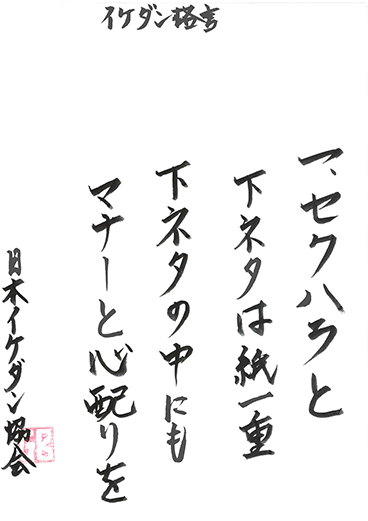 イケダン格言
一、セクハラと
下ネタは紙一重
下ネタの中にも
マナーと心配りを
日本イケダン協会